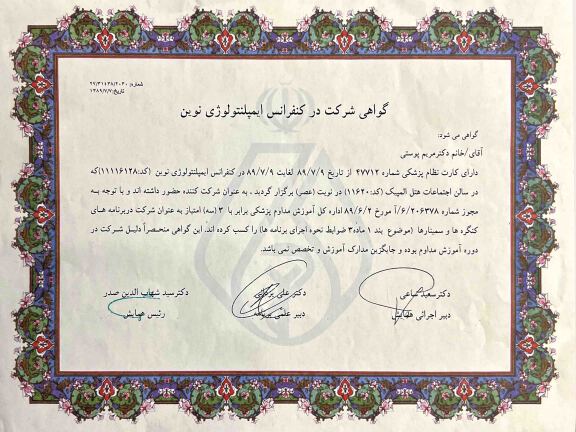 شماره: ۲۷/۳۱۴۳۸/۲۰۳۰
تاریخ: ۱۳۸۹/۷/۷
گواهی شرکت در کنفرانس ایمپلنتولوژی نوین
گواهی می شود:
آقای/خانم دکتر مریم پوستی
دارای کارت نظام پزشکی شماره ۴۷۷۱۲ از تاریخ ۸۹/۷/۹ لغایت ۸۹/۷/۹ در کنفرانس ایمپلنتولوژی نوین (کد:۱۱۱۱۶۱۲۸)که
در سالن اجتماعات هتل المپیک (کد:۱۱۶۲۰) در نوبت (عصر) برگزار گردید ، به عنوان شرکت کننده حضور داشته اند و با توجه به
مجوز شماره ۶/۲۰۶۳۷۸/آ مورخ ۸۹/۶/۲ اداره کل آموزش مداوم پزشکی برابر با ۳ (سه) امتیاز به عنوان شرکت دربرنامه های
کنگره ها و سمینارها (موضوع بند ۱ ماده۳ ضوابط نحوه اجرای برنامه ها) را کسب کرده اند. این گواهی منحصراً دلیل شرکت در
دوره آموزش مداوم بوده و جایگزین مدارک آموزش و تخصص نمی باشد.
دکتر سعید ساعی
دبیر اجرائی همایش
دکتر علی
دبیر علمی برنامه
دکترسید شهاب الدین صدر
رئیس همایش